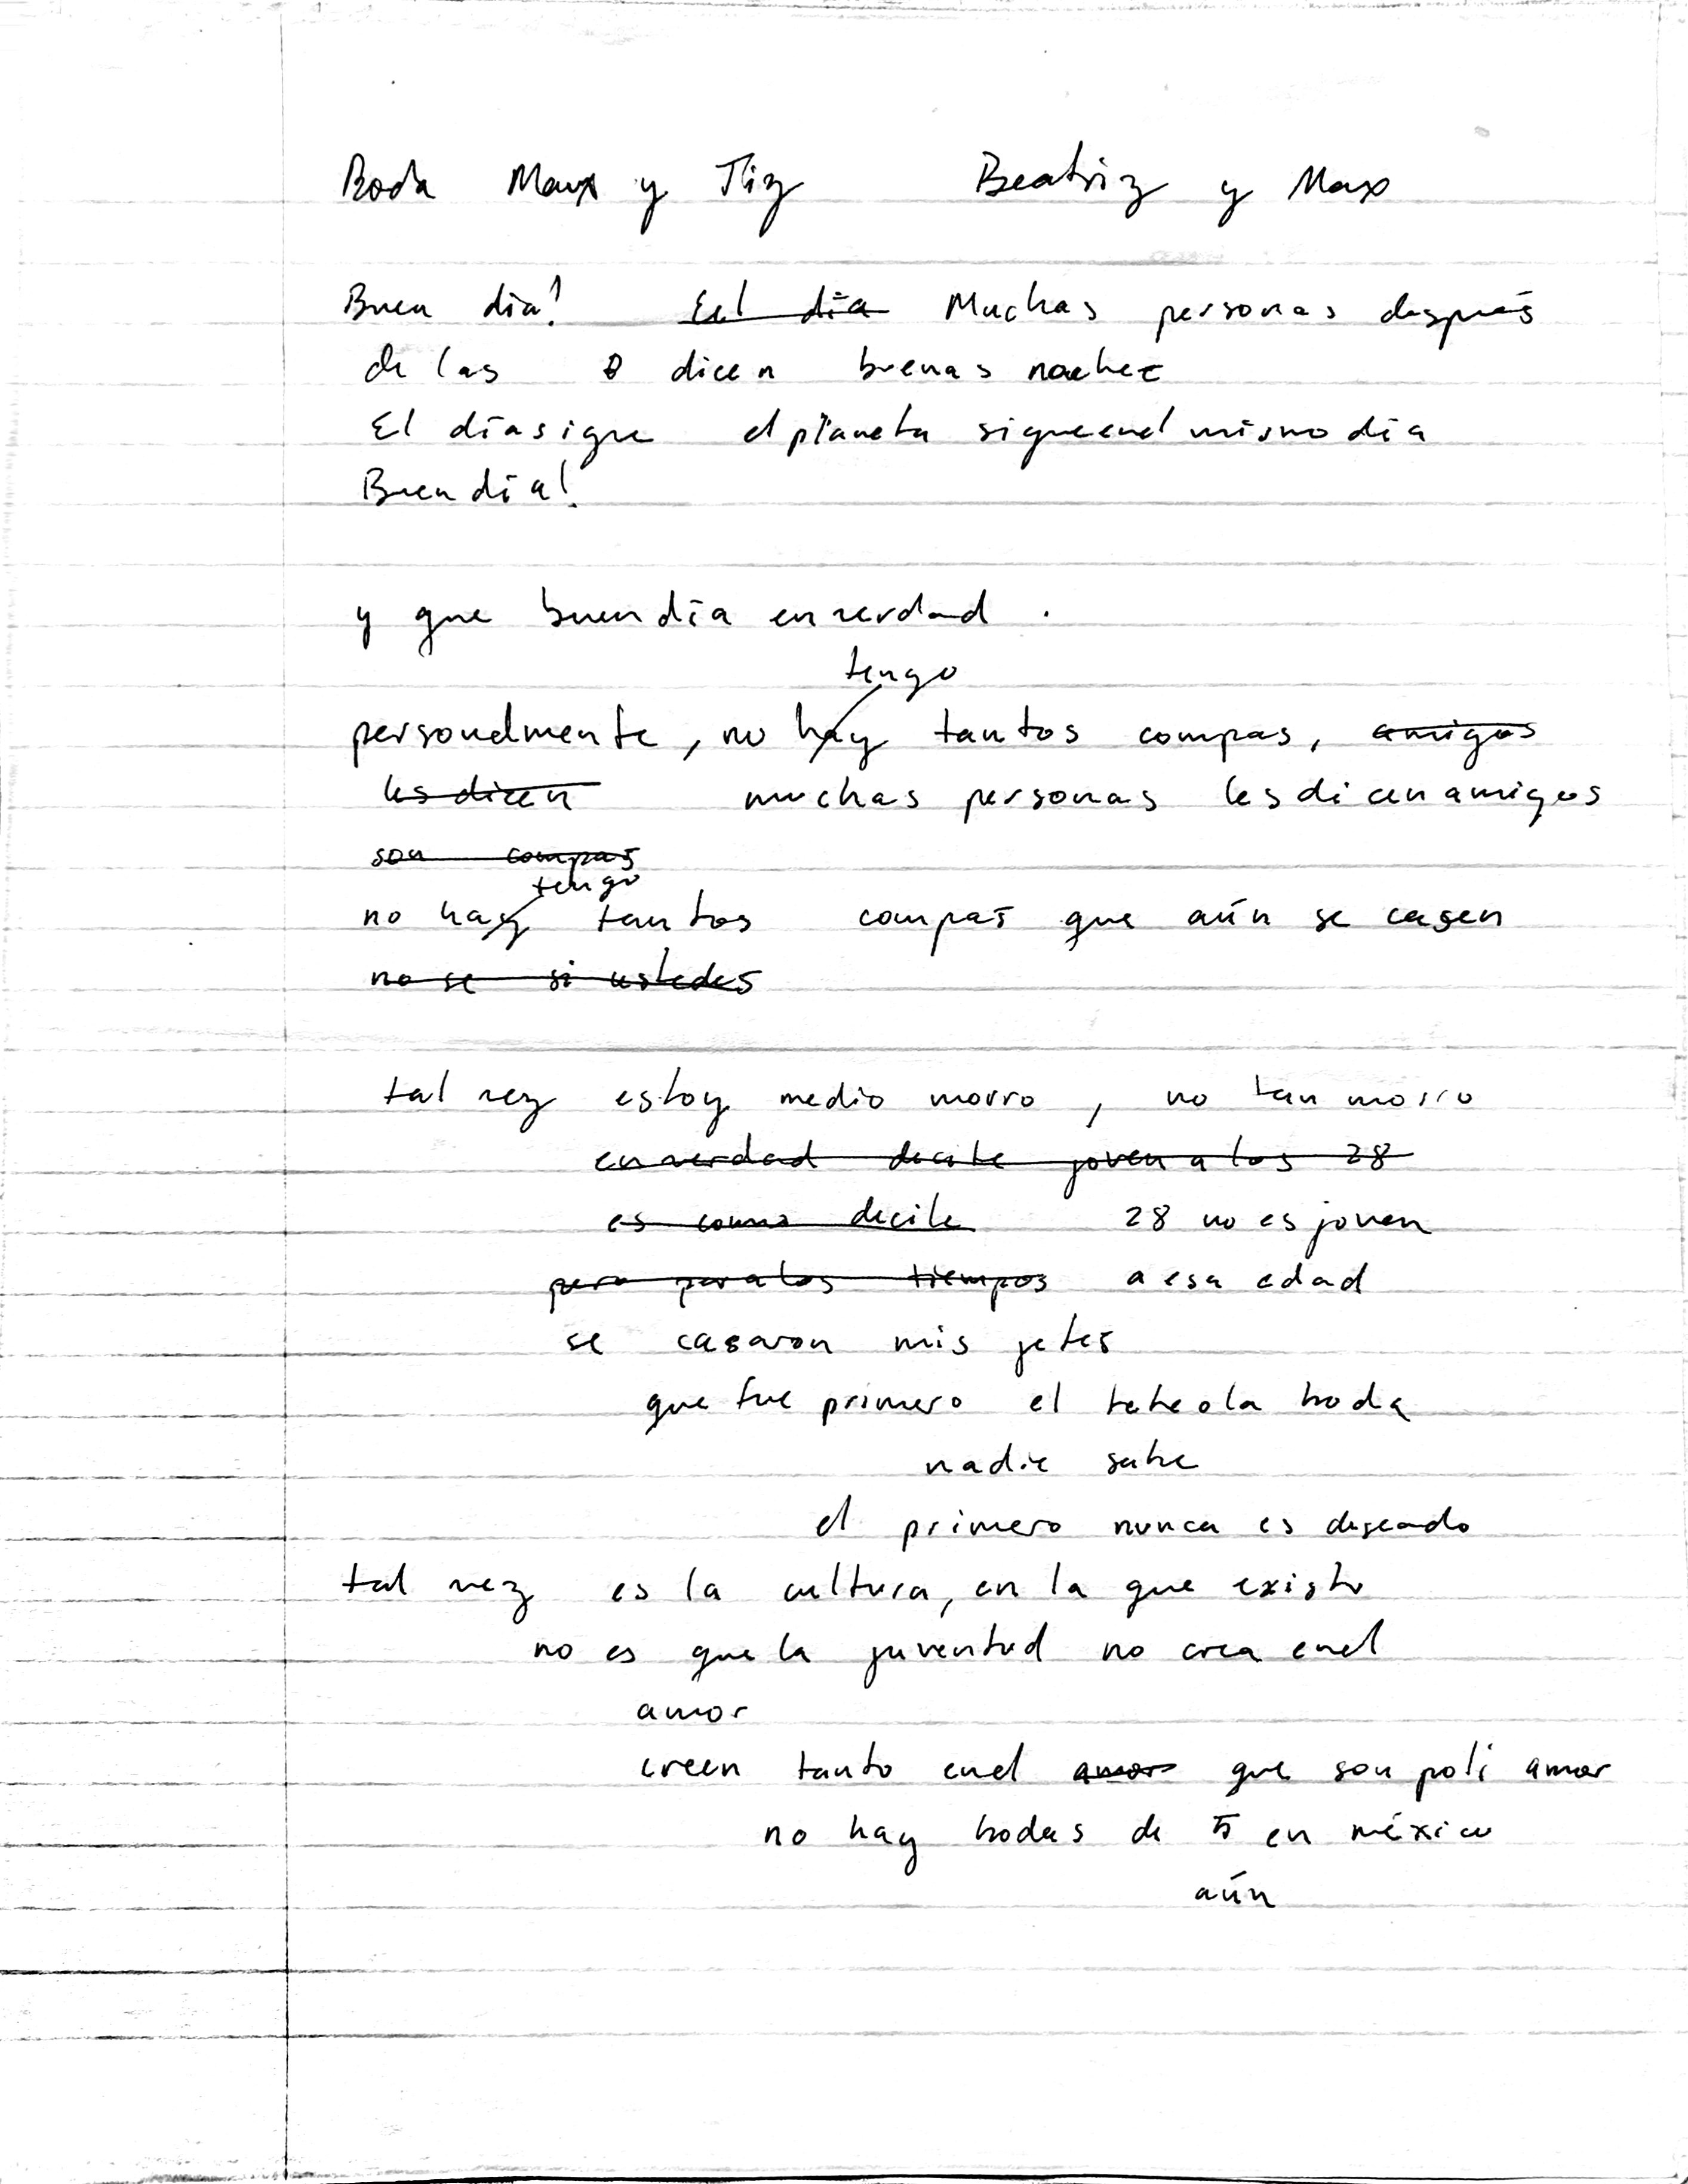 Boda Max y Tliz Beatriz y Max
Buen día! ~~Eel día~~ Muchas personas después
de las 8 dicen buenas noches
El día sigue el planeta sigue en el mismo día
Buen día!
y que buen día en verdad.
tengo
personalmente, no ~~hay~~ tantos compas, ~~amigos~~
~~les dicen~~ muchas personas les dicen amigos
~~son compas~~
tengo
no ~~hay~~ tantos compas que aún se casen
~~no se si ustedes~~
tal vez estoy medio morro, no tan morro
~~en verdad decirle joven a los 28~~
~~es como decile~~ 28 no es joven
~~pero para los tiempos~~ a esa edad
se casaron mis jefes
que fue primero el bebe o la boda
nadie sabe
el primero nunca es deseado
tal vez es la cultura, en la que existo
no es que la juventud no crea en el
amor
creen tanto en el ~~amor~~ que son poli amor
no hay bodas de 5 en méxico
aún